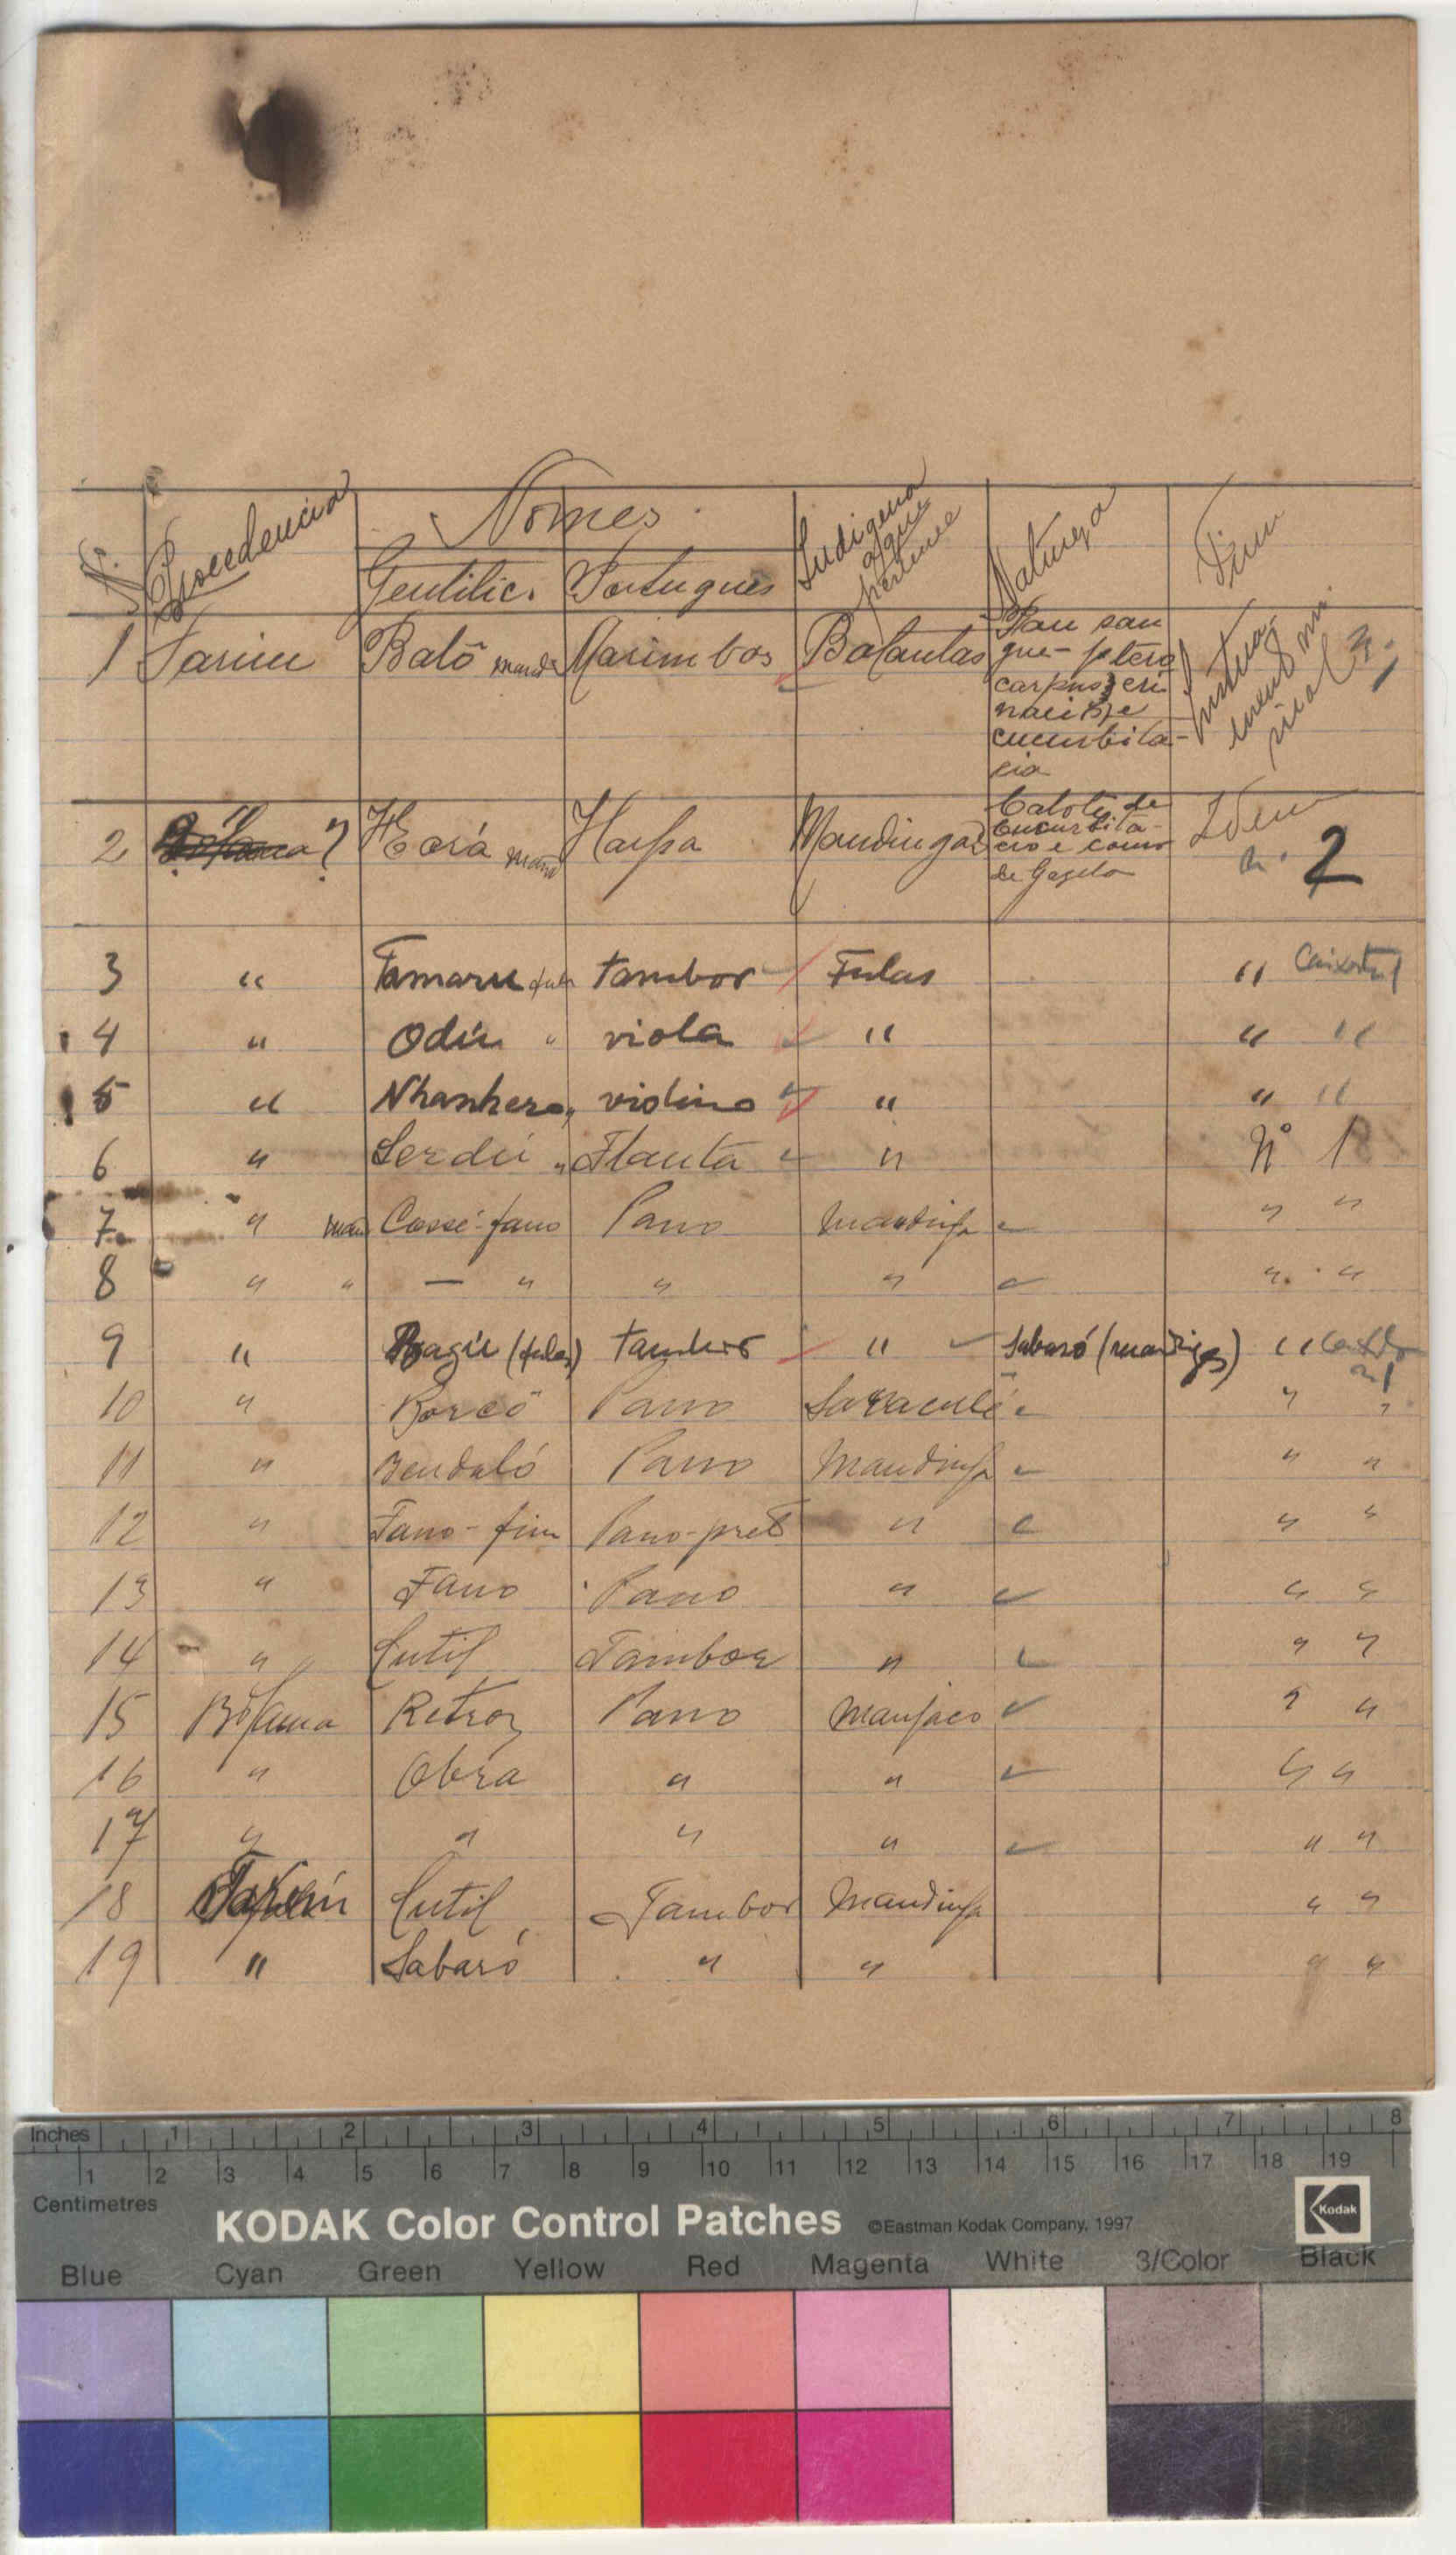 Nº Procedencia Nomes Indigena a que pertence Natureza Fim
Gentilic. Portugues
1 Farim Balô mand Marimbas Balantas Pau san
gue - ptero
carpus, eri
nacibs, e
cucurbita-
cia
Instru-
mento mu
sical
2 " Corá mand Harpa Mandingas Cabote de
cucurbita-
cio e couro
de Gazela
Idem
n. 2
3 " Tamaru fula tambor Fulas " Caixote 1
4 " Odiu " viola " " "
5 " Nhanhero " violino " " "
6 " Serdú " Flauta " Nº 1
7 " man Cossé-fano Pano Mandinga " "
8 " " — " " " " "
9 " (fulas) tambor " Sabaró (mandigas) "
10 " Borcô Pano Sarraculé " "
11 " Bendaló Pano Mandinga " "
12 " Fano-fim Pano-preto " " "
13 " Fano Pano " " "
14 " Cutil Tambor " " "
15 Bolama Retroz Pano Manjaco " "
16 " Obra " " " "
17 " " " " " "
18 Farim Cutil Tambor Mandinga " "
19 " Sabaró " " " "
Inches 1 2 3 4 5 6 7 8
1 2 3 4 5 6 7 8 9 10 11 12 13 14 15 16 17 18 19
Centimetres
KODAK Color Control Patches ©Eastman Kodak Company, 1997 Kodak
Blue Cyan Green Yellow Red Magenta White 3/Color Black